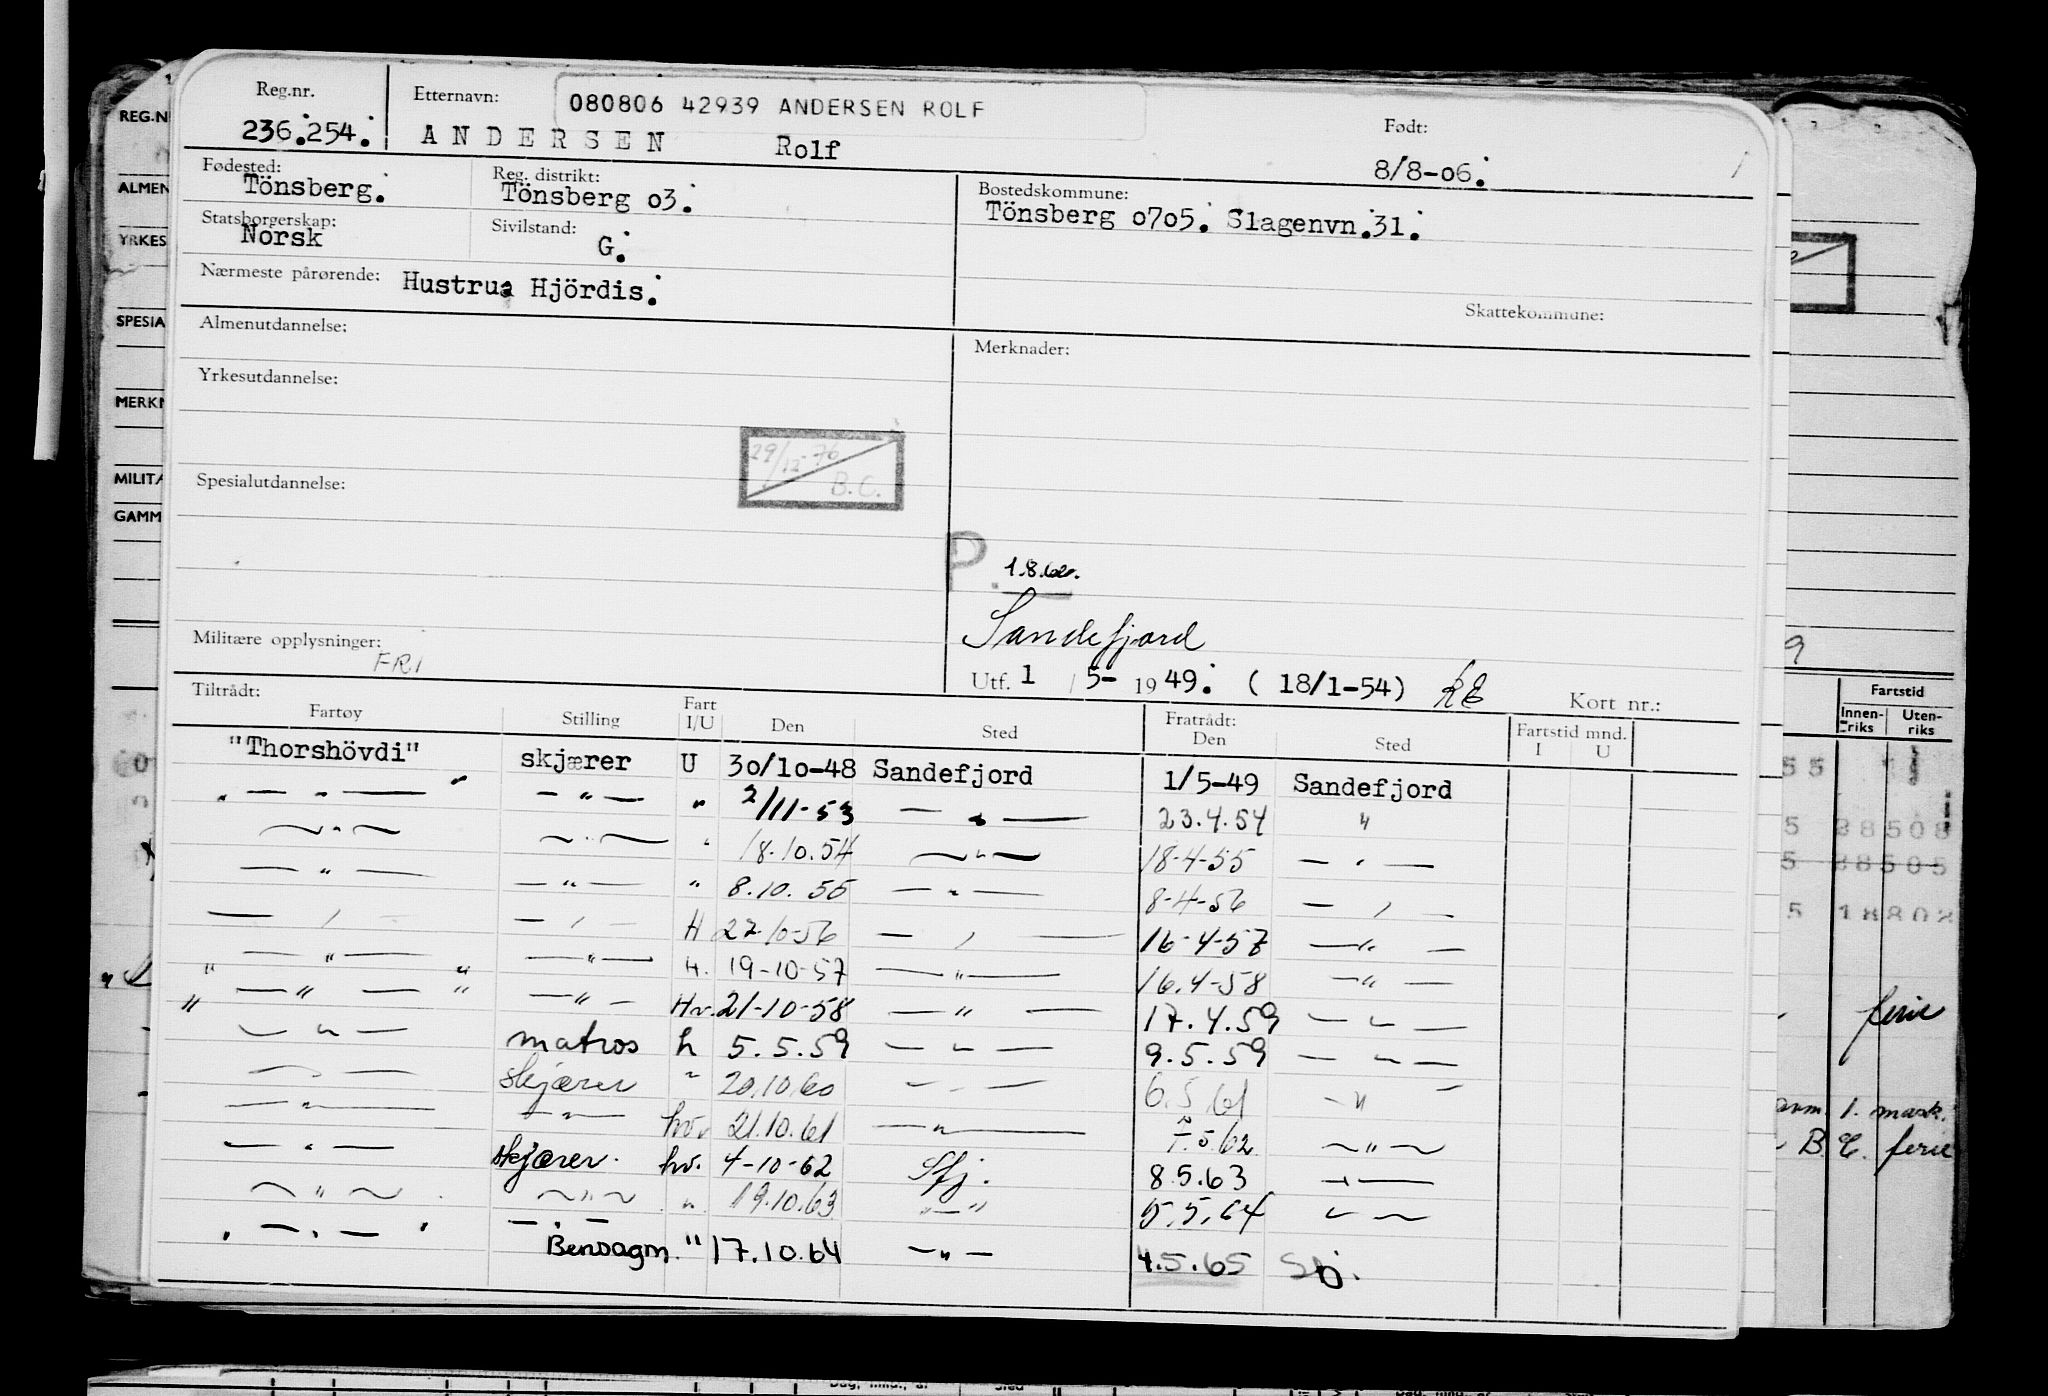 Reg.nr. Etternavn: 080806 42939 ANDERSEN ROLF Født:
236.254. ANDERSEN Rolf 8/8-06.
Fødested: Reg. distrikt: Bostedskommune:
Tönsberg. Tönsberg 03. Tönsberg 0705. Slagenvn.31.
Statsborgerskap: Sivilstand:
Norsk G.
Nærmeste pårørende: Hustrua Hjördis.
Skattekommune:
Almenutdannelse: Merknader:
Yrkesutdannelse:
29/12-76
B.C.
Spesialutdannelse:
P. 1.8.62.
Sandefjord
Militære opplysninger:
FRI
Utf. 1 / 5- 1949. ( 18/1-54) RE Kort nr.:
Tiltrådt: Fratrådt: Fartstid mnd.
Fartøy Stilling Fart I/U Den Sted Den Sted I U
"Thorshövdi" skjærer U 30/10-48 Sandefjord 1/5-49 Sandefjord
" — " — " — " — " 2/11-53 — " — 23.4.54 "
— " — — " — " 18.10.54 — " — 18-4-55 — " —
— " — — " — " 8.10.55 — " — 8-4-56 — " —
— " — — " — H 22-10-56 — " — 16-4-57 — " —
— " — — " — H. 19-10-57 — " — 16.4-58 — " —
" — " — " — " — Hv. 21-10-58 — " — 17.4.59 — " —
— " — matros h 5.5.59 — " — 9.5.59 — " —
— " — skjærer " 20.10.60 — " — 6.5.61 — " —
— " — — " — hv. 21.10.61 — " — 7.5.62 — " —
— " — skjærer. hv. 4-10-62 Sfj. 8.5.63 — " —
— " — — " — " 19.10.63 — " — 5.5.64 — " —
" — " — " — " —
Bensagm. " 17.10.64 — " — 4.5.65 Sfj.
REG.N
ALMEN
YRKES
SPESIA
MERKN
MILITÆ
GAMM
Fartstid
Innen-riks Uten-riks
ferie
1. mask.
B. C. ferie